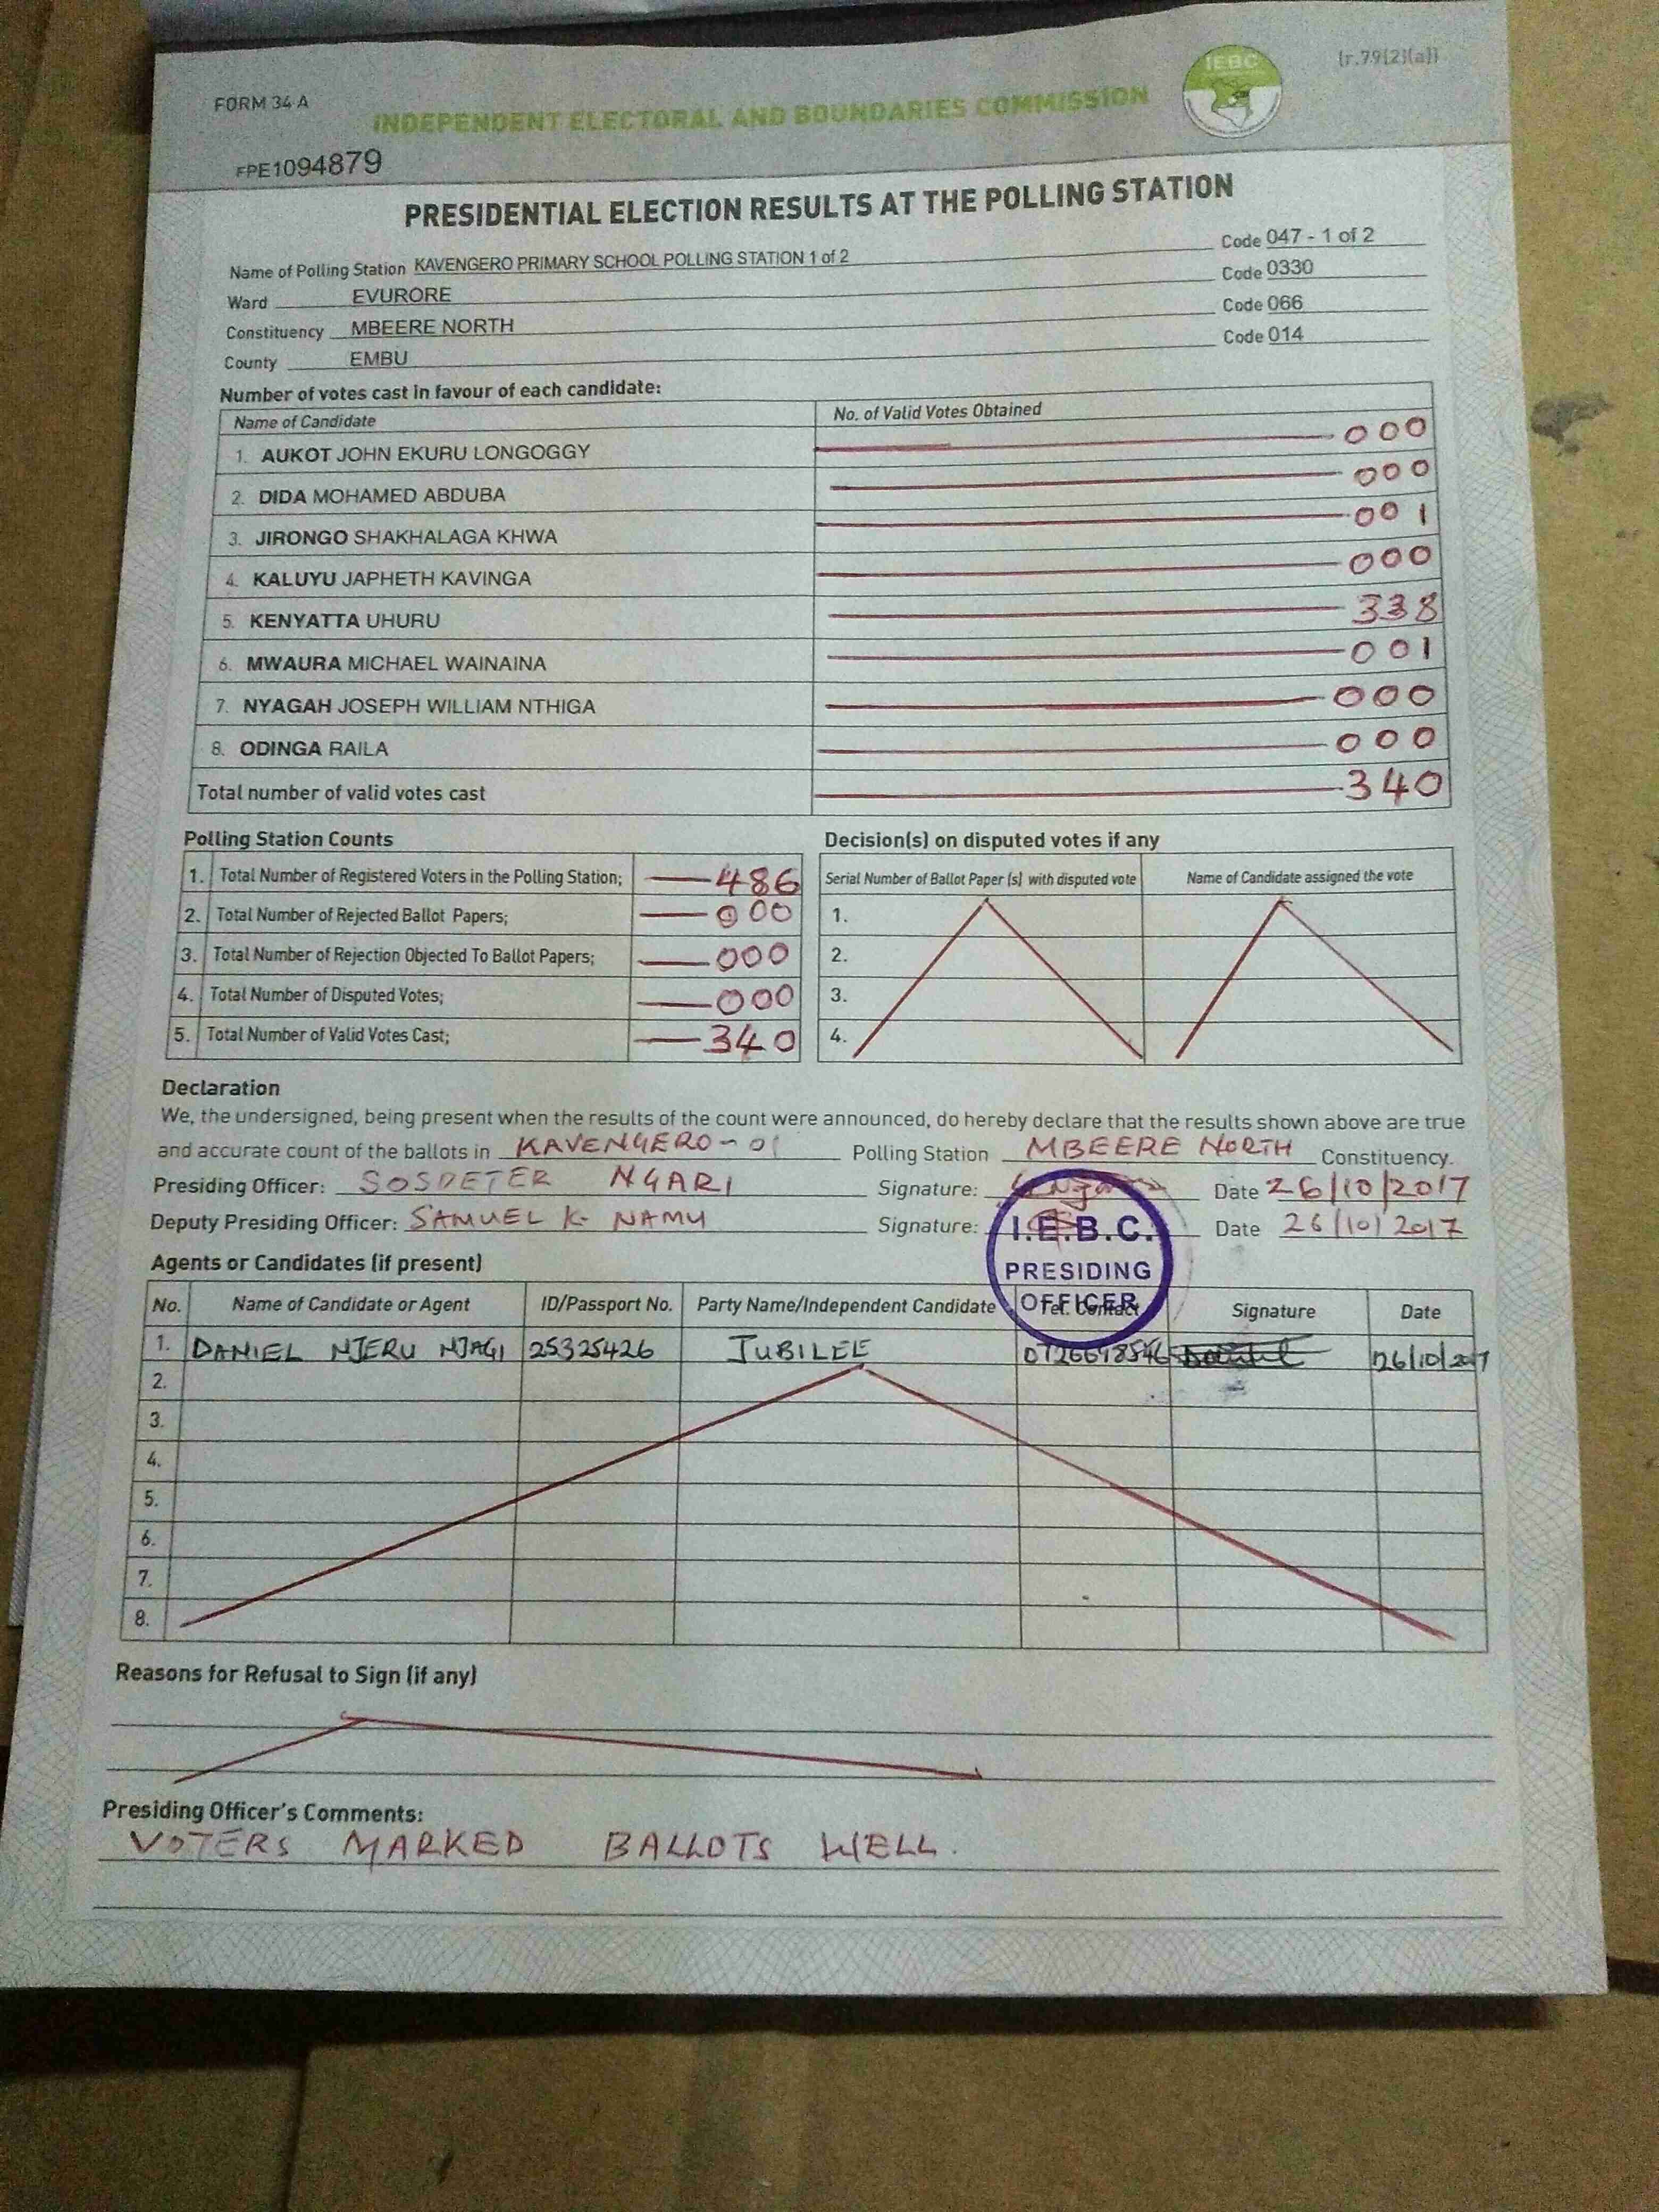 FORM 34 A
(r.79(2)(a))
IEBC
INDEPENDENT ELECTORAL AND BOUNDARIES COMMISSION
FPE1094879
PRESIDENTIAL ELECTION RESULTS AT THE POLLING STATION
Name of Polling Station KAVENGERO PRIMARY SCHOOL POLLING STATION 1 of 2 Code 047 - 1 of 2
Ward EVURORE Code 0330
Constituency MBEERE NORTH Code 066
County EMBU Code 014
Number of votes cast in favour of each candidate:
Name of Candidate No. of Valid Votes Obtained
1. AUKOT JOHN EKURU LONGOGGY 000
2. DIDA MOHAMED ABDUBA 000
3. JIRONGO SHAKHALAGA KHWA 001
4. KALUYU JAPHETH KAVINGA 000
5. KENYATTA UHURU 338
6. MWAURA MICHAEL WAINAINA 001
7. NYAGAH JOSEPH WILLIAM NTHIGA 000
8. ODINGA RAILA 000
Total number of valid votes cast 340
Polling Station Counts
1. Total Number of Registered Voters in the Polling Station; 486
2. Total Number of Rejected Ballot Papers; 000
3. Total Number of Rejection Objected To Ballot Papers; 000
4. Total Number of Disputed Votes; 000
5. Total Number of Valid Votes Cast; 340
Decision(s) on disputed votes if any
Serial Number of Ballot Paper (s) with disputed vote Name of Candidate assigned the vote
1.
2.
3.
4.
Declaration
We, the undersigned, being present when the results of the count were announced, do hereby declare that the results shown above are true
and accurate count of the ballots in KAVENGERO - 01 Polling Station MBEERE NORTH Constituency.
Presiding Officer: SOSPETER NGARI Signature: Date 26/10/2017
Deputy Presiding Officer: SAMUEL K. NAMU Signature: Date 26/10/2017
I.E.B.C.
PRESIDING
OFFICER
Agents or Candidates (if present)
No. Name of Candidate or Agent ID/Passport No. Party Name/Independent Candidate Tel. Contact Signature Date
1. DANIEL NJERU NJAGI 25325426 JUBILEE 26/10/2017
2.
3.
4.
5.
6.
7.
8.
Reasons for Refusal to Sign (if any)
Presiding Officer's Comments:
VOTERS MARKED BALLOTS WELL.